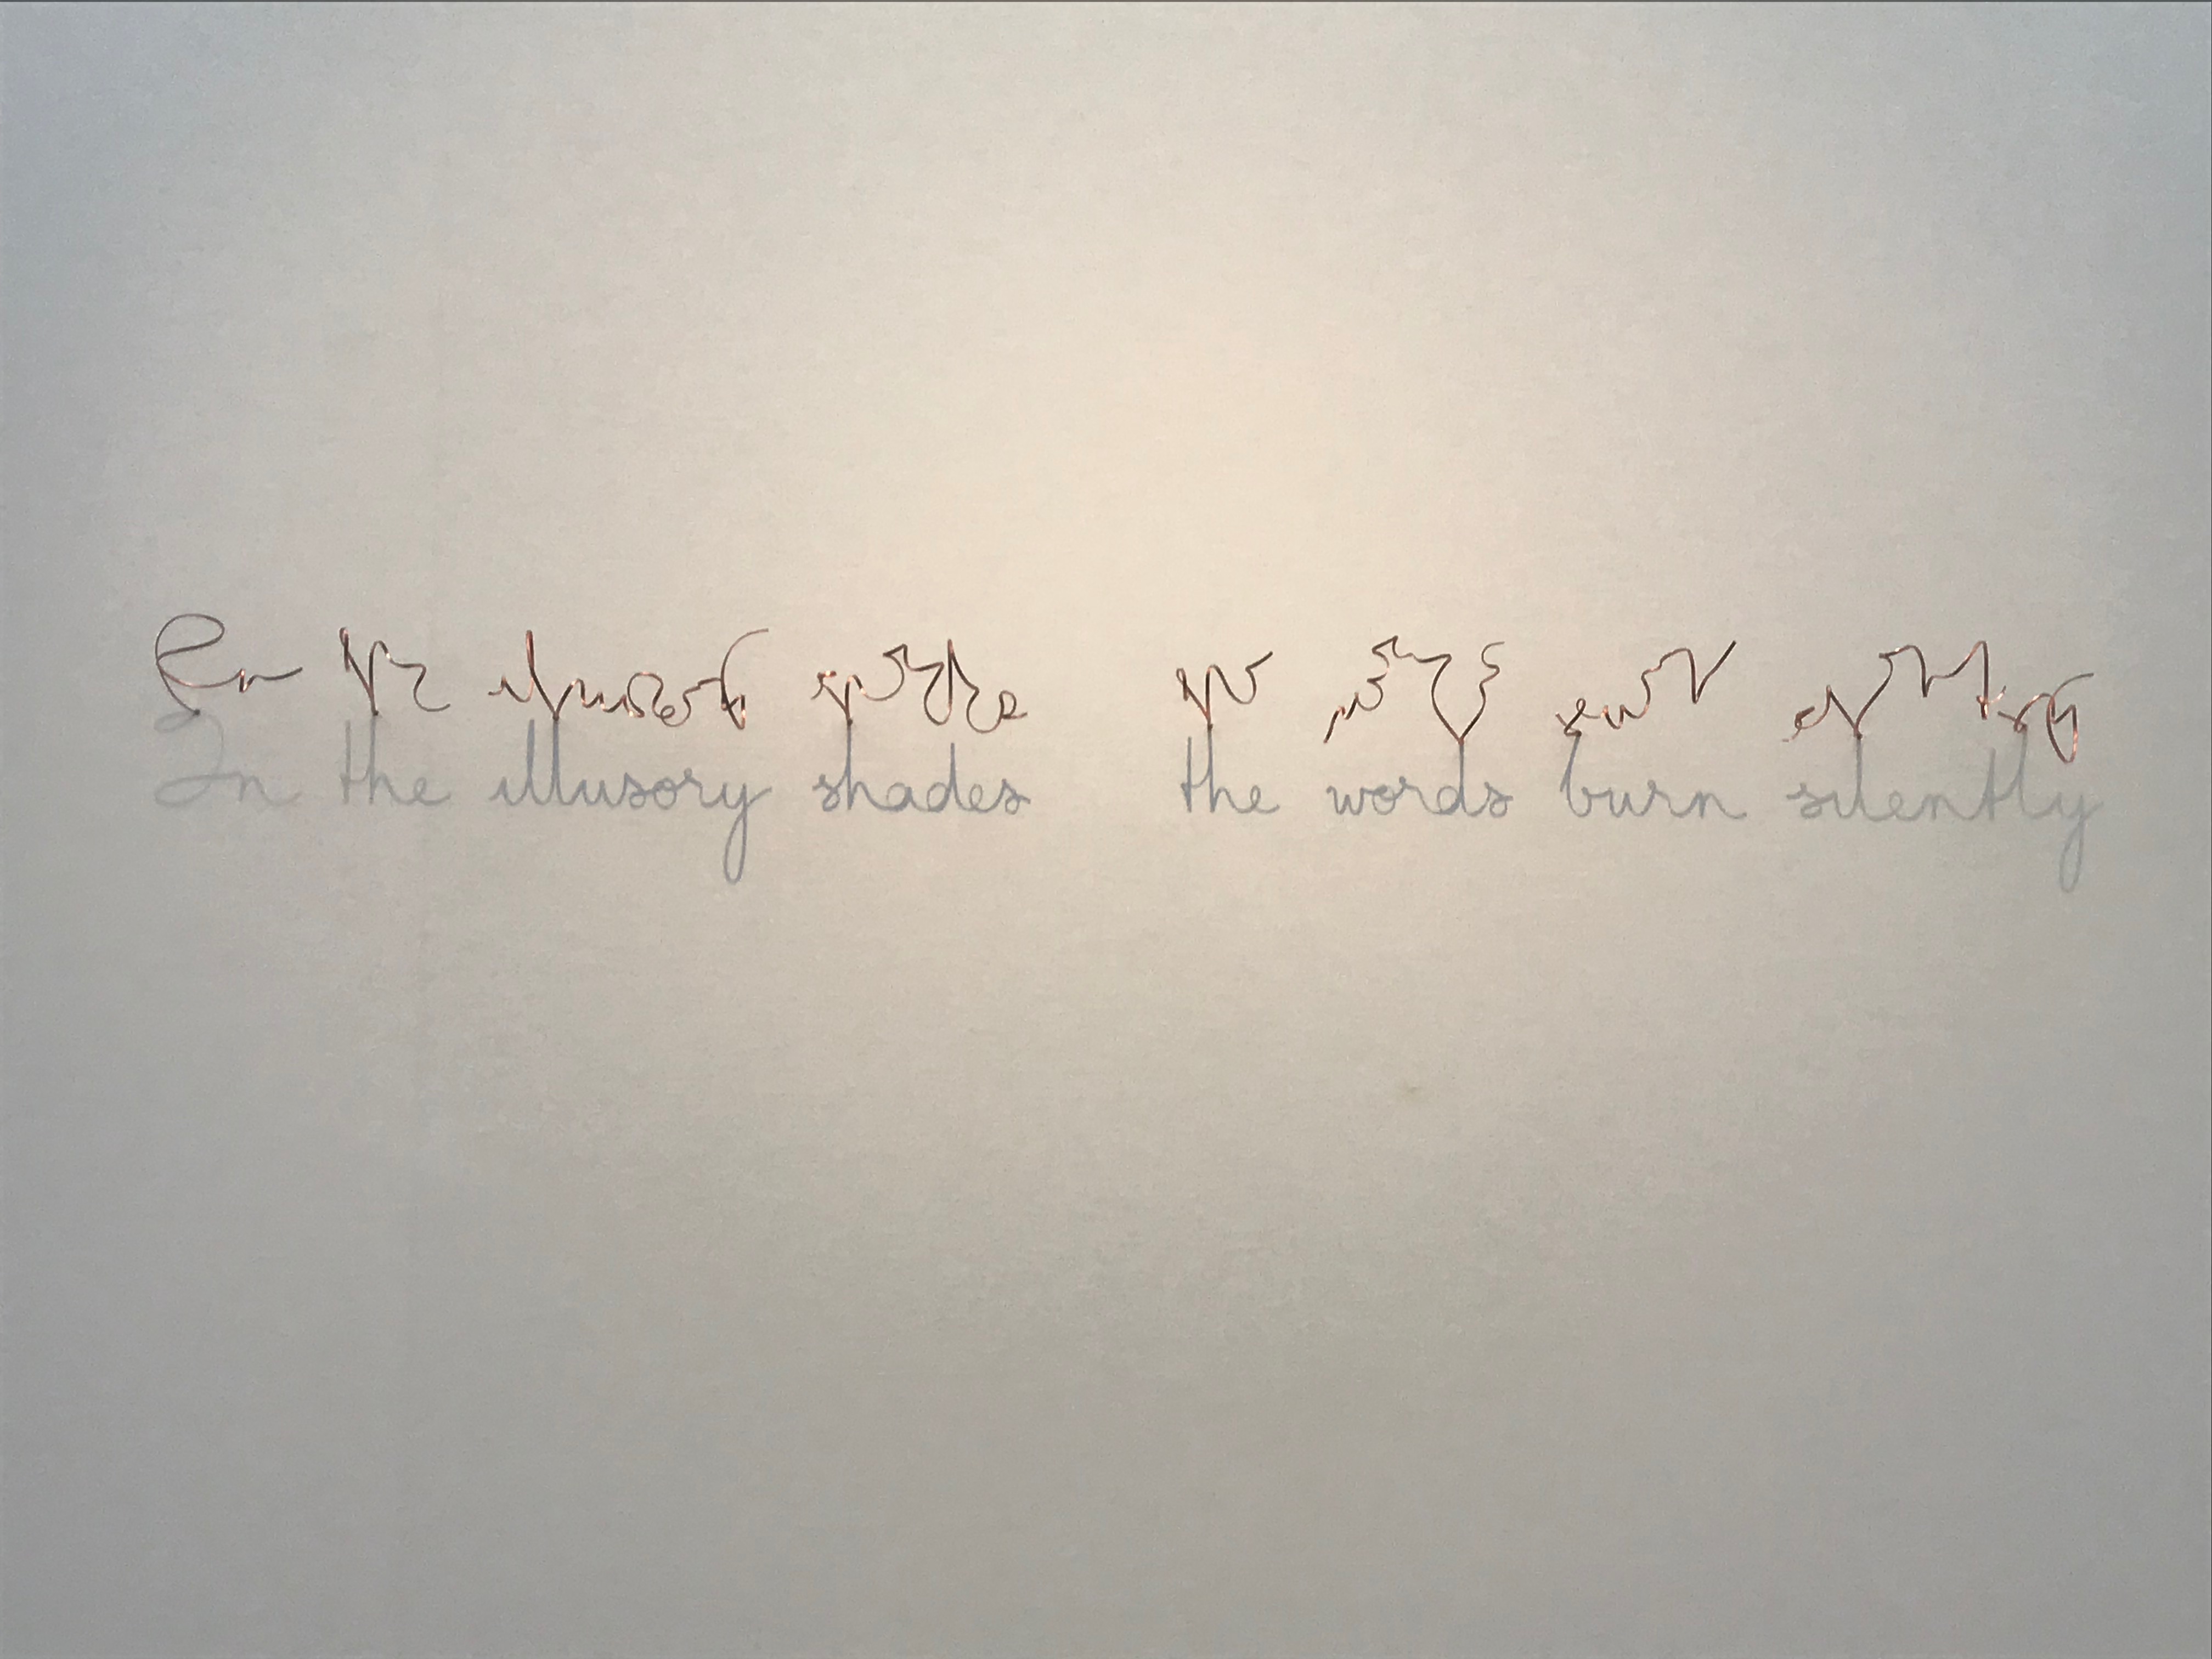 In the illusory shades the words burn silently